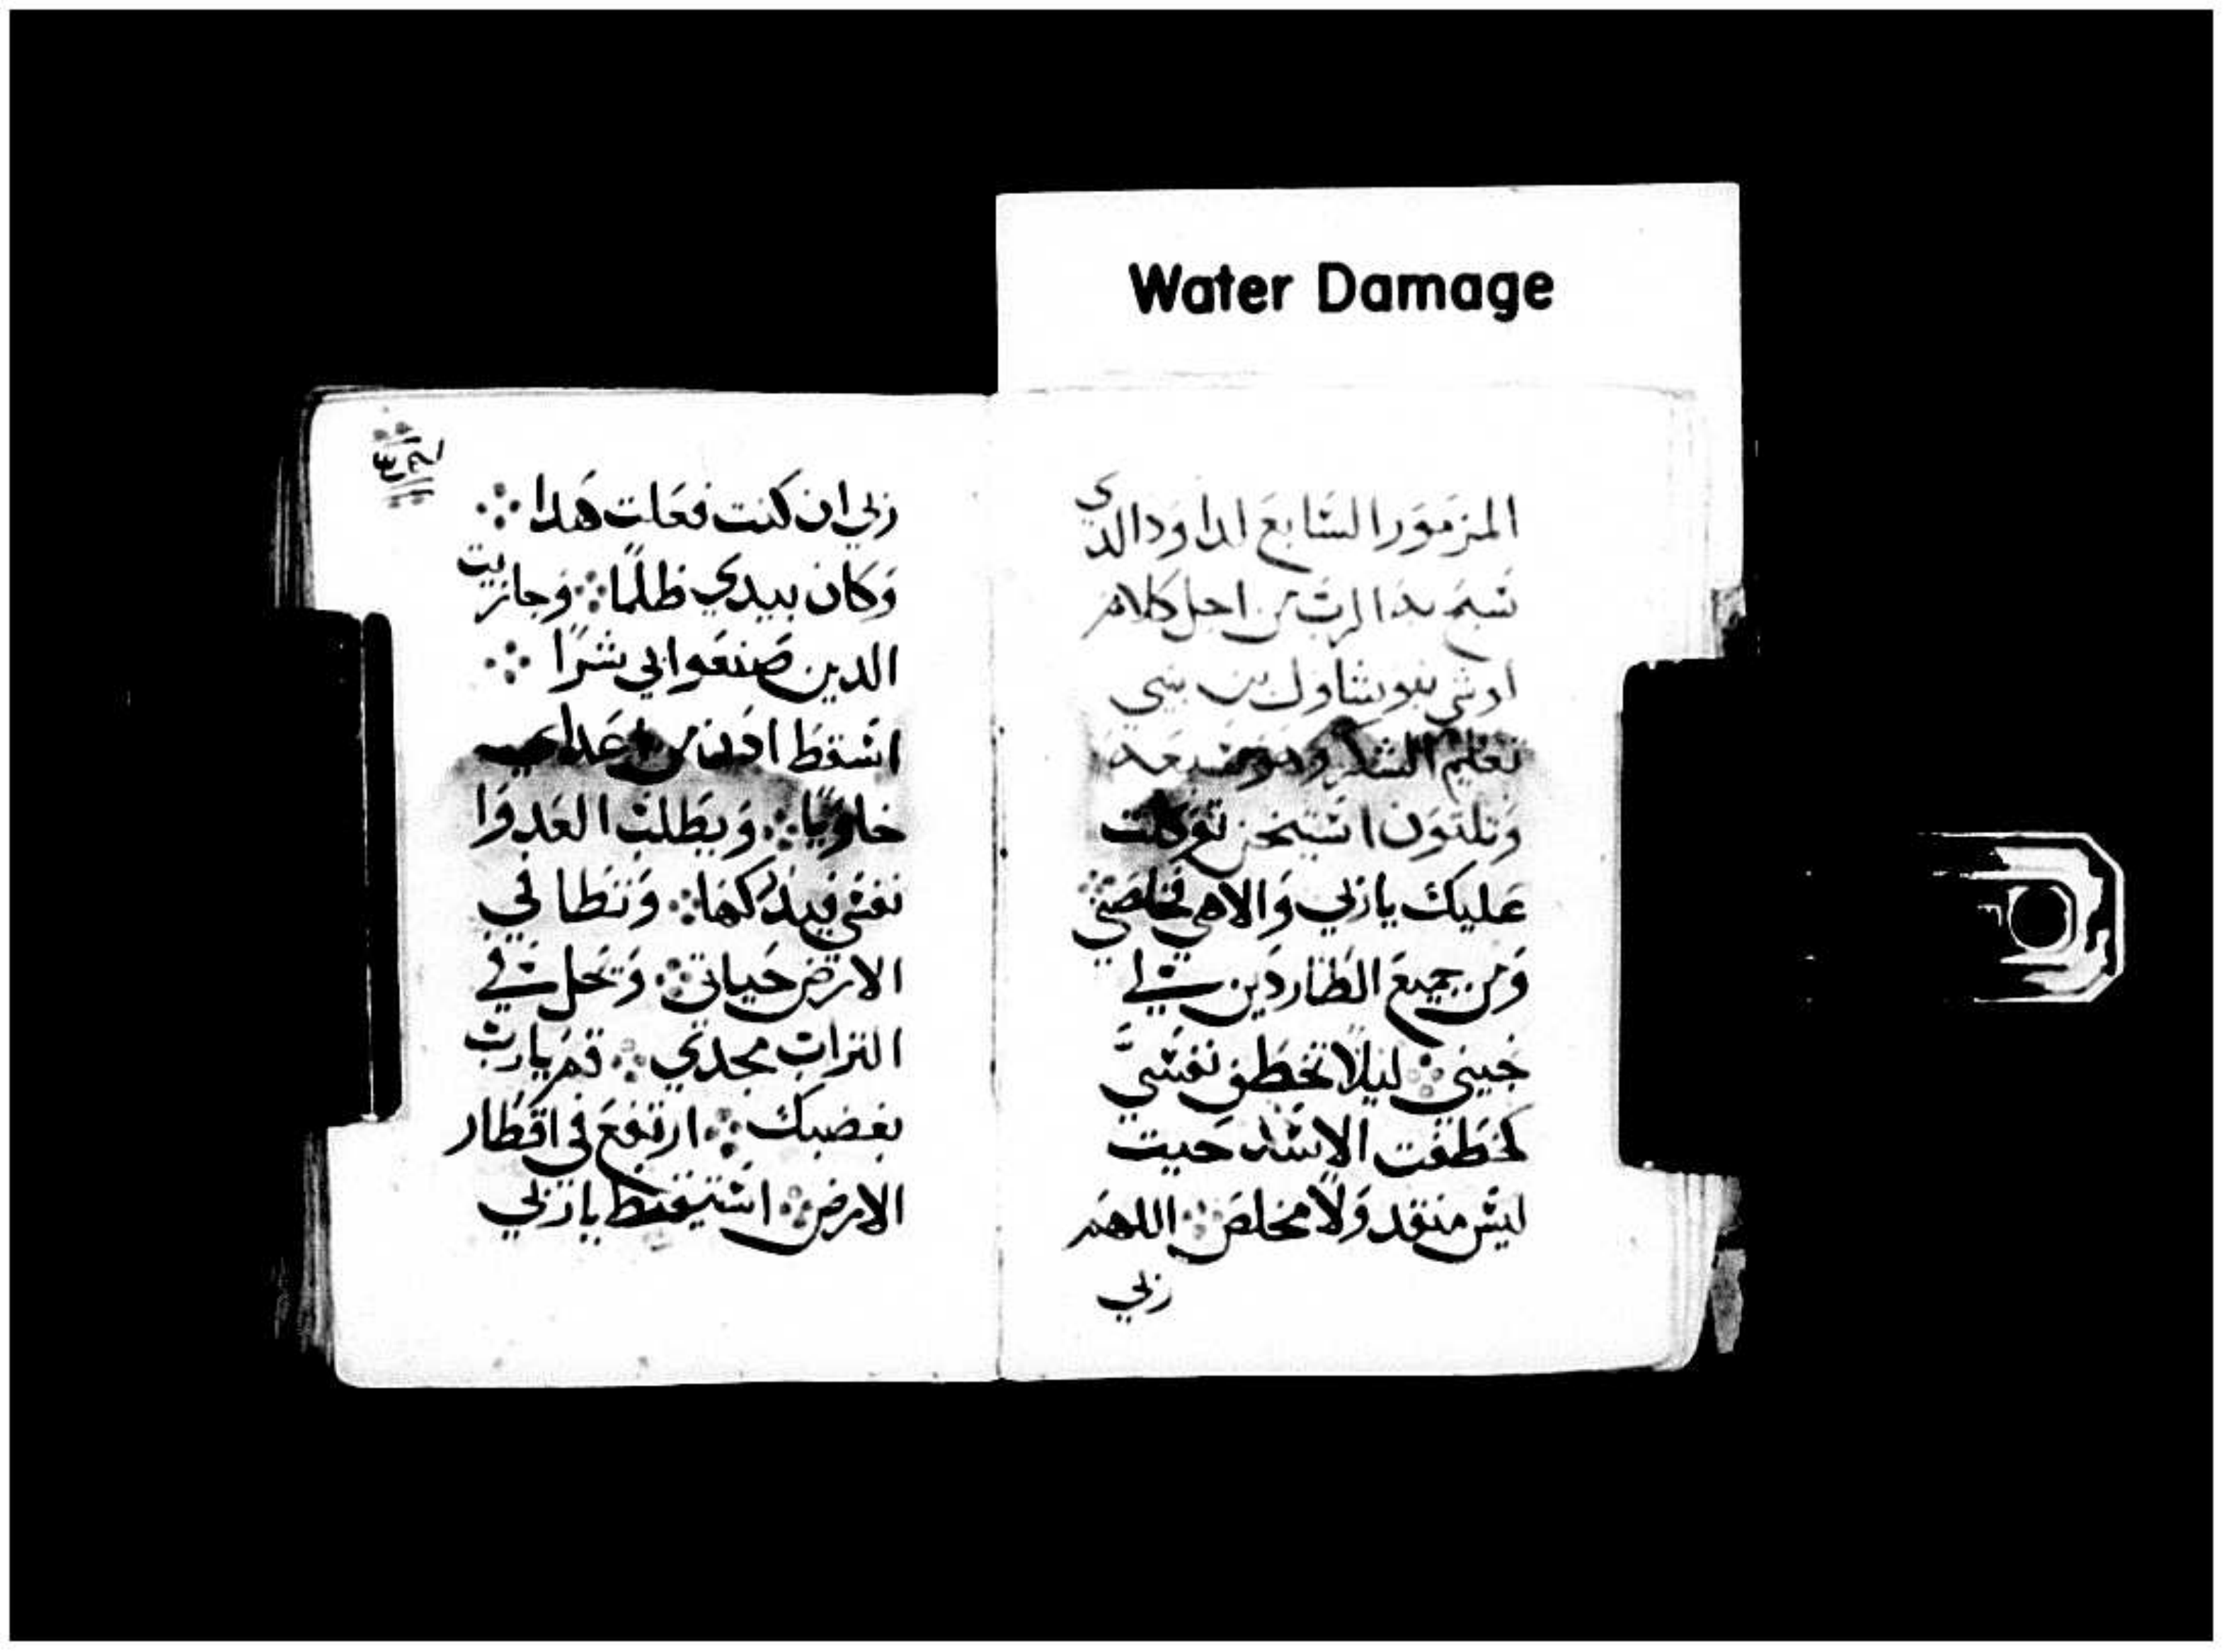 Water Damage
المزمور السابع لداود الدي
سبح به الرب من اجل كلام
تعليم الشكر وهو
وتلتون استيخن توكلت
عليك ياربي والاهي فخلصني
ومن جميع الطاردين لي
خيني ليلا تخطف نفسي
كخطفت الاسد حيت
ليس منقد ولا مخلص اللهم
ربي
ربي ان كنت فعلت هدا
وكان بيدي ظلما وجازيت
الدين صنعوا بي شرا
اسقط ادن من اعداي
خاويا ويطلب العدوا
نفسي فيدركها وتطا في
الارض حياتي وتحل في
التراب مجدي قم يارب
بغضبك ارتفع في اقطار
الارض استيقظ ياربي